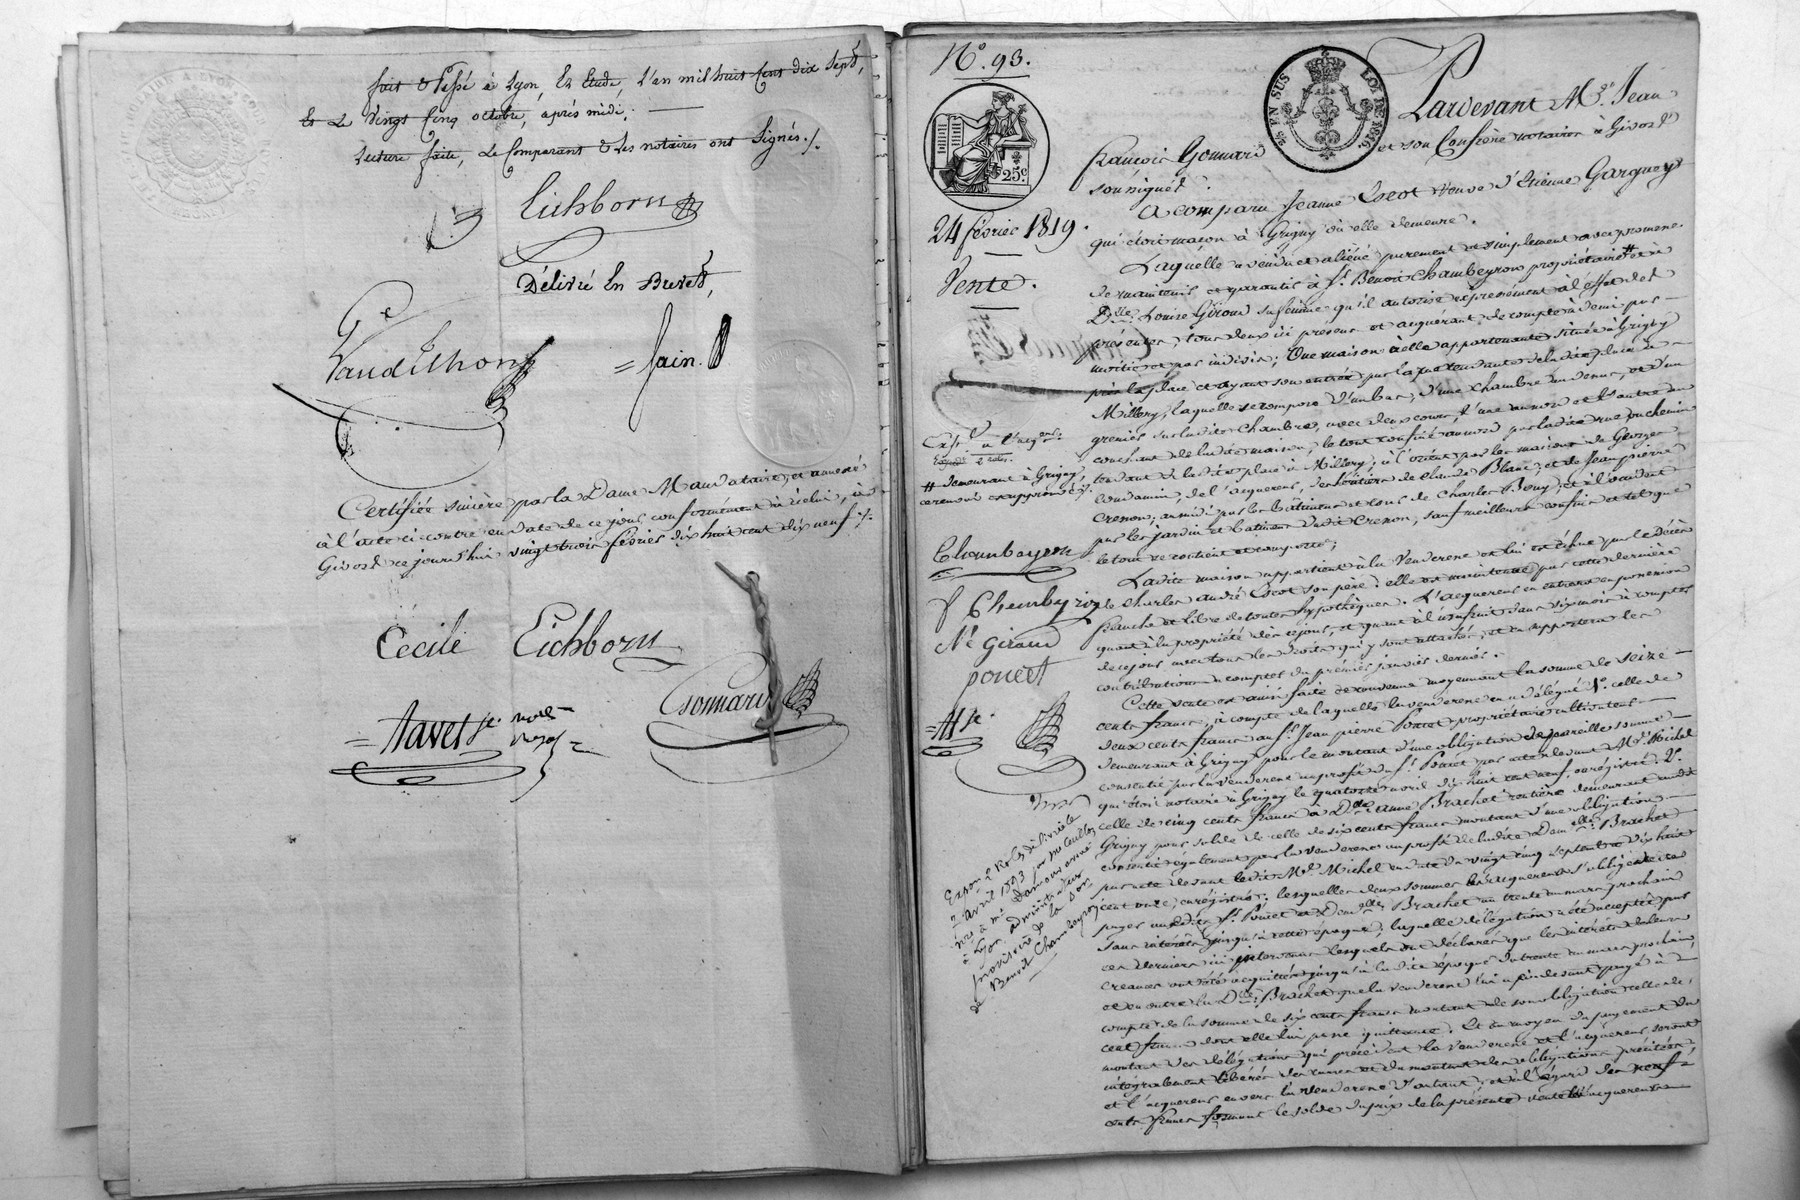 fait & Passé à Lyon, En Etude, L'an mil huit cent dix Sept,
Et Le Vingt Cinq octobre, après midi;
Lecture faite, Le Comparant & Les notaires ont Signés./.
Eichborn
Délivré En Brevet,
= Jain.
Certifiée sincère par la Dame Mandataire, et annexée
à l'acte ci-contre en date de ce jour conformément à icelui, à
Givors ce jourd'hui vingt trois février dix huit cent dix neuf ./.
Cécile Eichborn
Gonnard
= Tavet
N°. 93.
25c
25 EN SUS
LOI DE 1816.
24 février 1819.
Vente.
# demeurant à Grigny,
Chambeyron
f Chambeyron
Née Giraud
poncet
2 avril 1893 par
à Lyon administrateur
provisoire de la
de Benoit Chambeyron
Pardevant Me. Jean
François Gonnard et son Confrère notaires à Givors
soussignés.
A comparu Jeanne Escot veuve d'Etienne Garguey
qui étoit maçon à Grigny où elle demeure.
Laquelle a vendu et aliéné purement et simplement avec promesse
de maintenir et garantir à Sr. Benoit Chambeyron propriétaire # et à
Dlle. Louise Giraud sa femme qu'il autorise expressément à l'effet des
présentes, tous deux ici présens et acquérant de compte à demi par
moitié et par indivis; Une maison à elle appartenante située à Grigny
près la place et ayant son entrée par la rue tendante de la dite place à
Millery, laquelle se compose d'un bas, d'une chambre au dessus, et d'un
grenier sur la dite chambre, avec deux cours, l'une au nord et l'autre au
couchant de la dite maison; le tout confiné au nord par la dite rue ou chemin
tendant de la dite place à Millery; à l'orient par les maisons de George
Condamin, de l'acquéreur, des héritiers de Claude Blanc, et de Jean pierre
Crenon; au midi par les bâtimens et cour de Charles Bouy; et à l'occident
par les jardin et batiment dudit Crenon, sauf meilleurs confins et tel que
le tout se contient et comporte;
Ladite maison appartient à la Venderesse et lui est échue par le décès
de Charles andré Escot son père: elle est maintenue par cette dernière
franche et libre de toutes hypothèques. L'acquéreur en entrera en possession
quant à la propriété dès ce jour, et quant à l'usufruit dans six mois à compter
de ce jour avec tous les droits qui y sont attachés, et en supportera les
contributions à compter du premier janvier dernier.
Cette vente est ainsi faite et convenue moyennant la somme de seize
cents francs, à compte de laquelle la venderesse en a délégué 1°. celle de
deux cents francs au Sr. Jean pierre Poncet propriétaire cultivateur
demeurant à Grigny pour le montant d'une obligation de pareille somme
consentie par la venderesse au profit du Sr. Poncet par acte devant Me. Michel
qui étoit notaire à Grigny le quatorze avril dix huit cent neuf, enregistré. 2°.
celle de cinq cents francs à Dlle. anne Brachet rentière demeurant audit
Grigny pour solde de celle de six cents francs montant d'une obligation
consentie également par la venderesse au profit de ladite Demlle. Brachet
par acte devant ledit Me. Michel en date du vingt cinq septembre dix huit
cent onze, enregistré: lesquelles deux sommes les acquéreurs s'obligent de
payer audits Sr. Poncet et Demlle. Brachet au trente un mars prochain
sans intérêts jusqu'à cette époque; laquelle délégation a été acceptée par
ces derniers ici intervenus lesquels ont déclaré que les intérêts de leurs
créances ont été acquittés jusqu'à la dite époque du trente un mars prochain,
et en outre la Dlle. Brachet que la venderesse lui a ci devant payé à
compte de la somme de six cents francs montant de son obligation celle de
cent francs dont elle lui passe quittance. Et au moyen du payement du
montant des délégations qui précèdent la venderesse et l'acquéreur seront
intégralement libérés des causes et du montant des obligations précitées,
et l'acquéreur envers la venderesse d'autant; et à l'égard des neuf
cents francs formant le solde du prix de la présente vente les acquéreurs